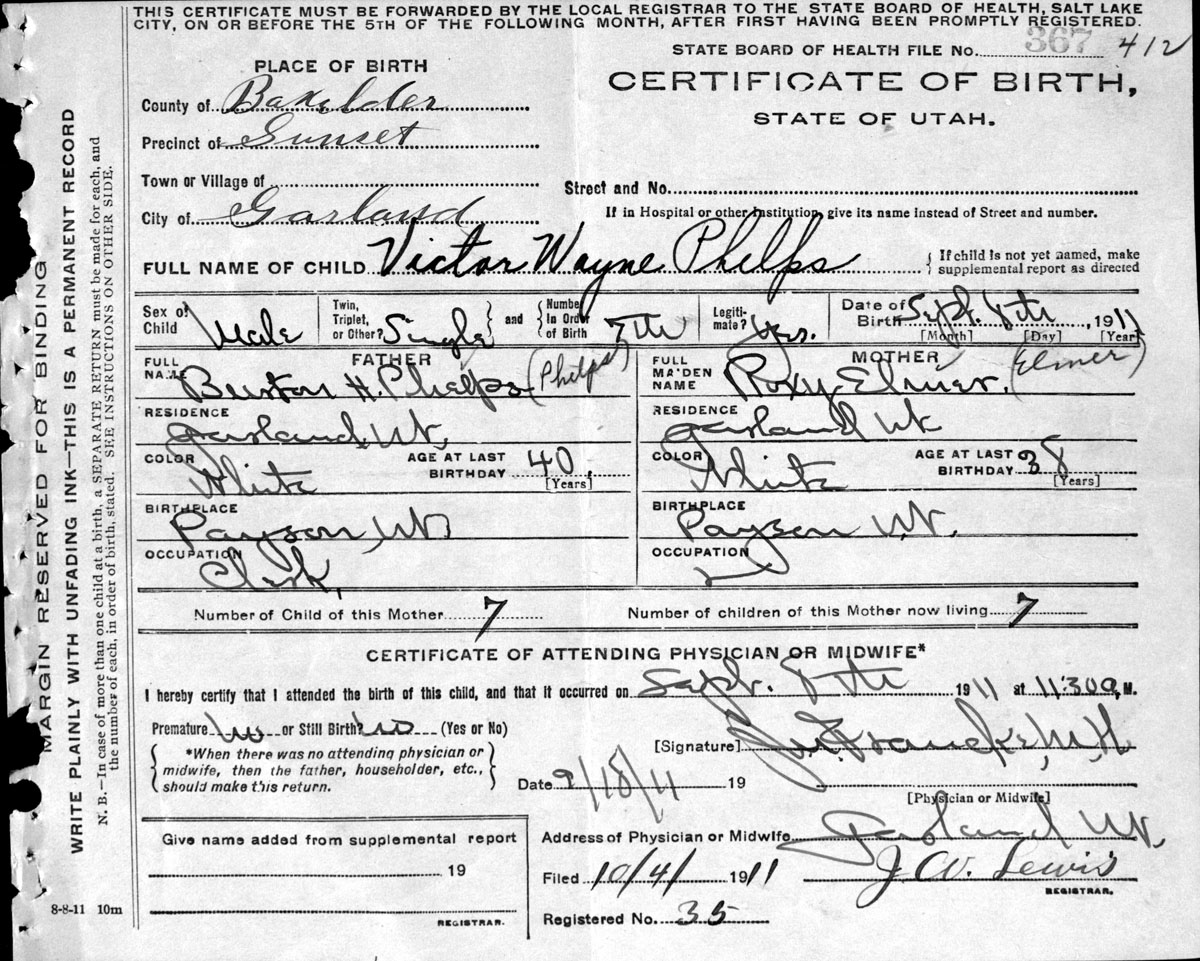 THIS CERTIFICATE MUST BE FORWARDED BY THE LOCAL REGISTRAR TO THE STATE BOARD OF HEALTH, SALT LAKE
CITY, ON OR BEFORE THE 5TH OF THE FOLLOWING MONTH, AFTER FIRST HAVING BEEN PROMPTLY REGISTERED.
STATE BOARD OF HEALTH FILE No. 367 412
PLACE OF BIRTH
CERTIFICATE OF BIRTH,
STATE OF UTAH.
County of Boxelder
Precinct of Sunset
Town or Village of
Street and No.
City of Garland
If in Hospital or other Institution, give its name instead of Street and number.
FULL NAME OF CHILD Victor Wayne Phelps
If child is not yet named, make
supplemental report as directed
Sex of Child Male
Twin, Triplet, or Other? Single and Number In Order of Birth 7th
Legiti-mate? Yes.
Date of Birth Sept. 8th, 1911
[Month] [Day] [Year]
FATHER
FULL NAME Burton H. Phelps (Phelps)
MOTHER
FULL MAIDEN NAME Roxy Elmer. (Elmer)
RESIDENCE Garland, Ut.
RESIDENCE Garland Ut
COLOR White AGE AT LAST BIRTHDAY 40 [Years]
COLOR White AGE AT LAST BIRTHDAY 38 [Years]
BIRTHPLACE Payson, Ut
BIRTHPLACE Payson Ut.
OCCUPATION Clerk,
OCCUPATION
Number of Child of this Mother 7
Number of children of this Mother now living 7
CERTIFICATE OF ATTENDING PHYSICIAN OR MIDWIFE*
I hereby certify that I attended the birth of this child, and that it occurred on Sept. 8th 1911 at 11:30 a, M.
Premature No or Still Birth? No (Yes or No)
*When there was no attending physician or
midwife, then the father, householder, etc.,
should make this return.
[Signature] Francke,
Date 9/18/11 19
[Physician or Midwife]
Address of Physician or Midwife Garland Ut,
Filed 10/4/ 1911 J. W. Lewis
REGISTRAR.
Registered No. 35
Give name added from supplemental report
19
REGISTRAR.
8-8-11 10m
MARGIN RESERVED FOR BINDING
WRITE PLAINLY WITH UNFADING INK—THIS IS A PERMANENT RECORD
N. B.—In case of more than one child at a birth, a SEPARATE RETURN must be made for each, and
the number of each, in order of birth, stated. SEE INSTRUCTIONS ON OTHER SIDE.